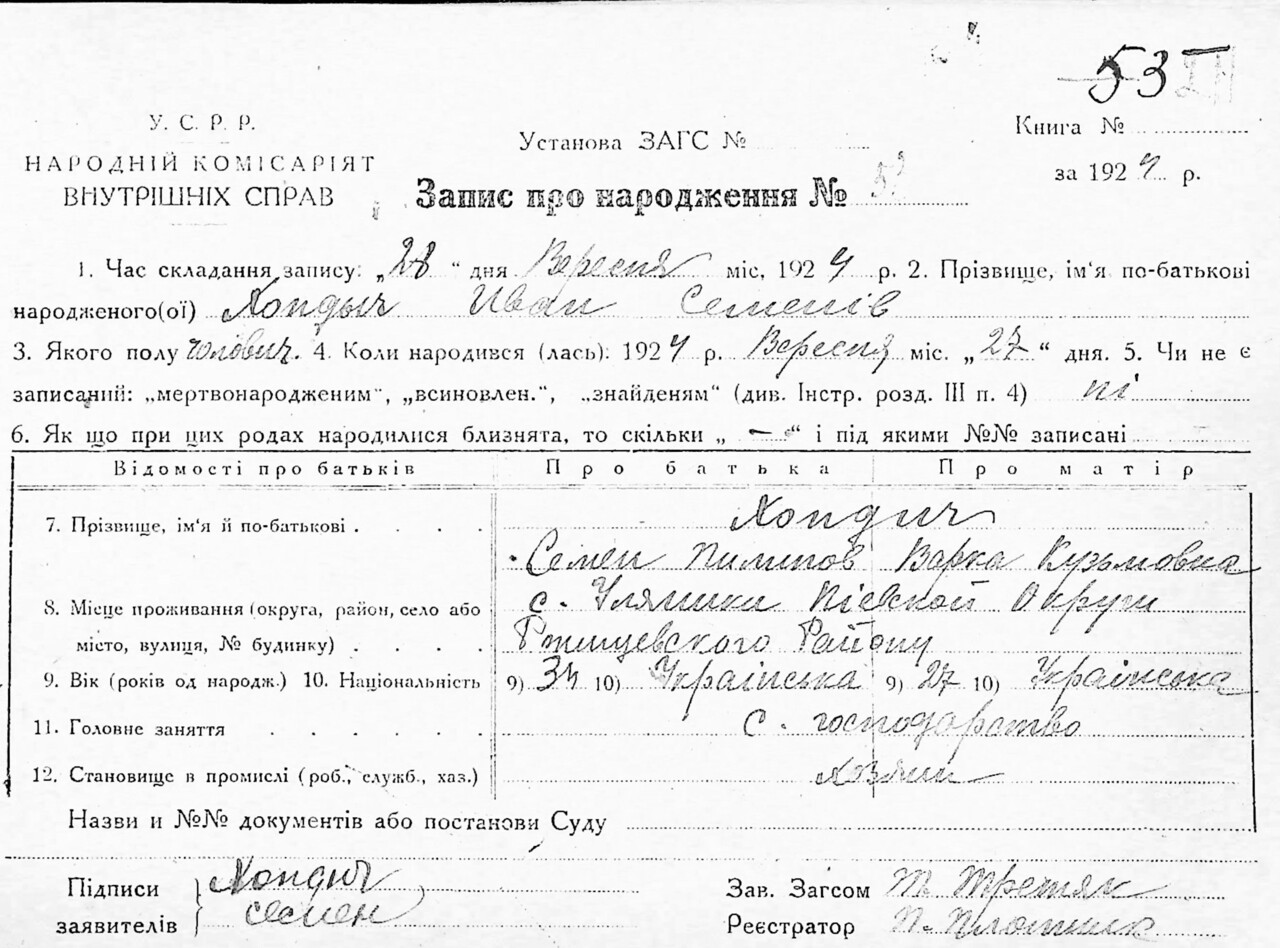 53
У. С. Р. Р.
НАРОДНІЙ КОМІСАРІЯТ
ВНУТРІШНІХ СПРАВ
Установа ЗАГС №
Книга №
за 1924 р.
Запис про народження № 53
1. Час складання запису: „28 “ дня Вересня міс. 1924 р. 2. Прізвище, ім'я по-батькові
народженого(ої) Хондыч Иван Семенів
3. Якого полу чоловіч. 4. Коли народився (лась): 1924 р. Вересня міс. „27 “ дня. 5. Чи не є
записаний: „мертвонародженим“, „всиновлен.“, „знайденям“ (див. Інстр. розд. III п. 4) ні
6. Як що при цих родах народилися близнята, то скільки „ — “ і під якими №№ записані
Відомості про батьків Про батька Про матір
7. Прізвище, ім'я й по-батькові . . . . Хондич
Семен Пилипов Варка Кузьмовна
8. Місце проживання (округа, район, село або с. Уляники Київской Округи
місто, вулиця, № будинку) . . . . Ржищевского Району
9. Вік (років од народж.) 10. Національність 9) 34 10) Українська 9) 27 10) Українська
11. Головне заняття . . . . . . с. господарство
12. Становище в промислі (роб., служб., хаз.) хозяин
Назви и №№ документів або постанови Суду
Підписи
заявителів
Хондич
Семен
Зав. Загсом Т. Третяк
Реєстратор П. Плотник